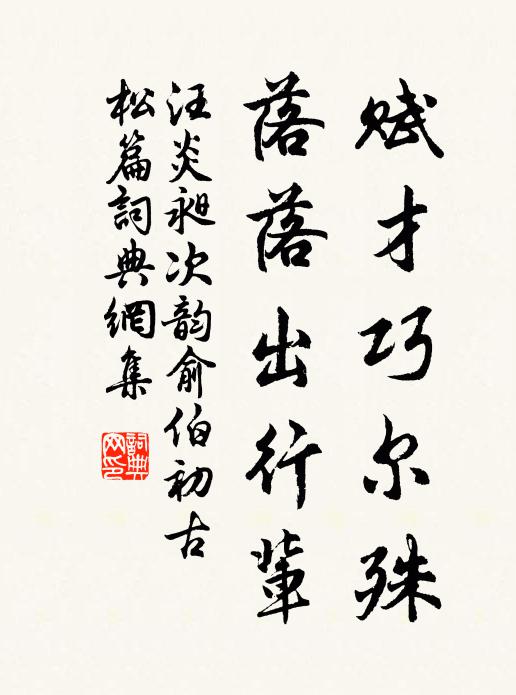 赋才巧尔殊
落落出行輩
汪炎昶次韵俞伯初古
松篇詞典網集
詞典網印